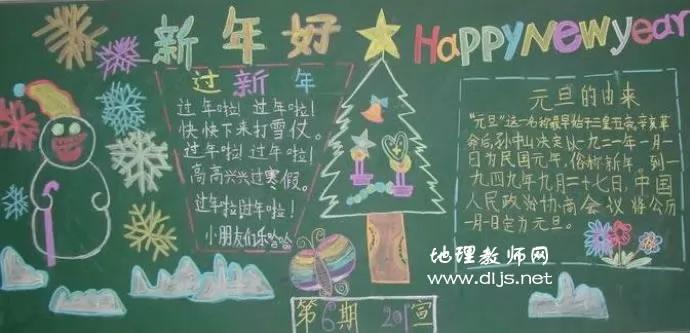 新年好
Happy New year
过新年
过年啦!过年啦!
快快下来打雪仗。
过年啦!过年啦!
高高兴兴过寒假。
过年啦过年啦!
小朋友们乐哈哈
元旦的由来
"元旦"这一名称最早始于三皇五帝,辛亥革
命后,孙中山决定以一九二一年一月一
日为民国元年,俗称新年,到一
九四九年九月二十七日,中国
人民政治协商会议将公历
一月一日定为元旦。
地理教师网
www.dljs.net
第6期 201宣